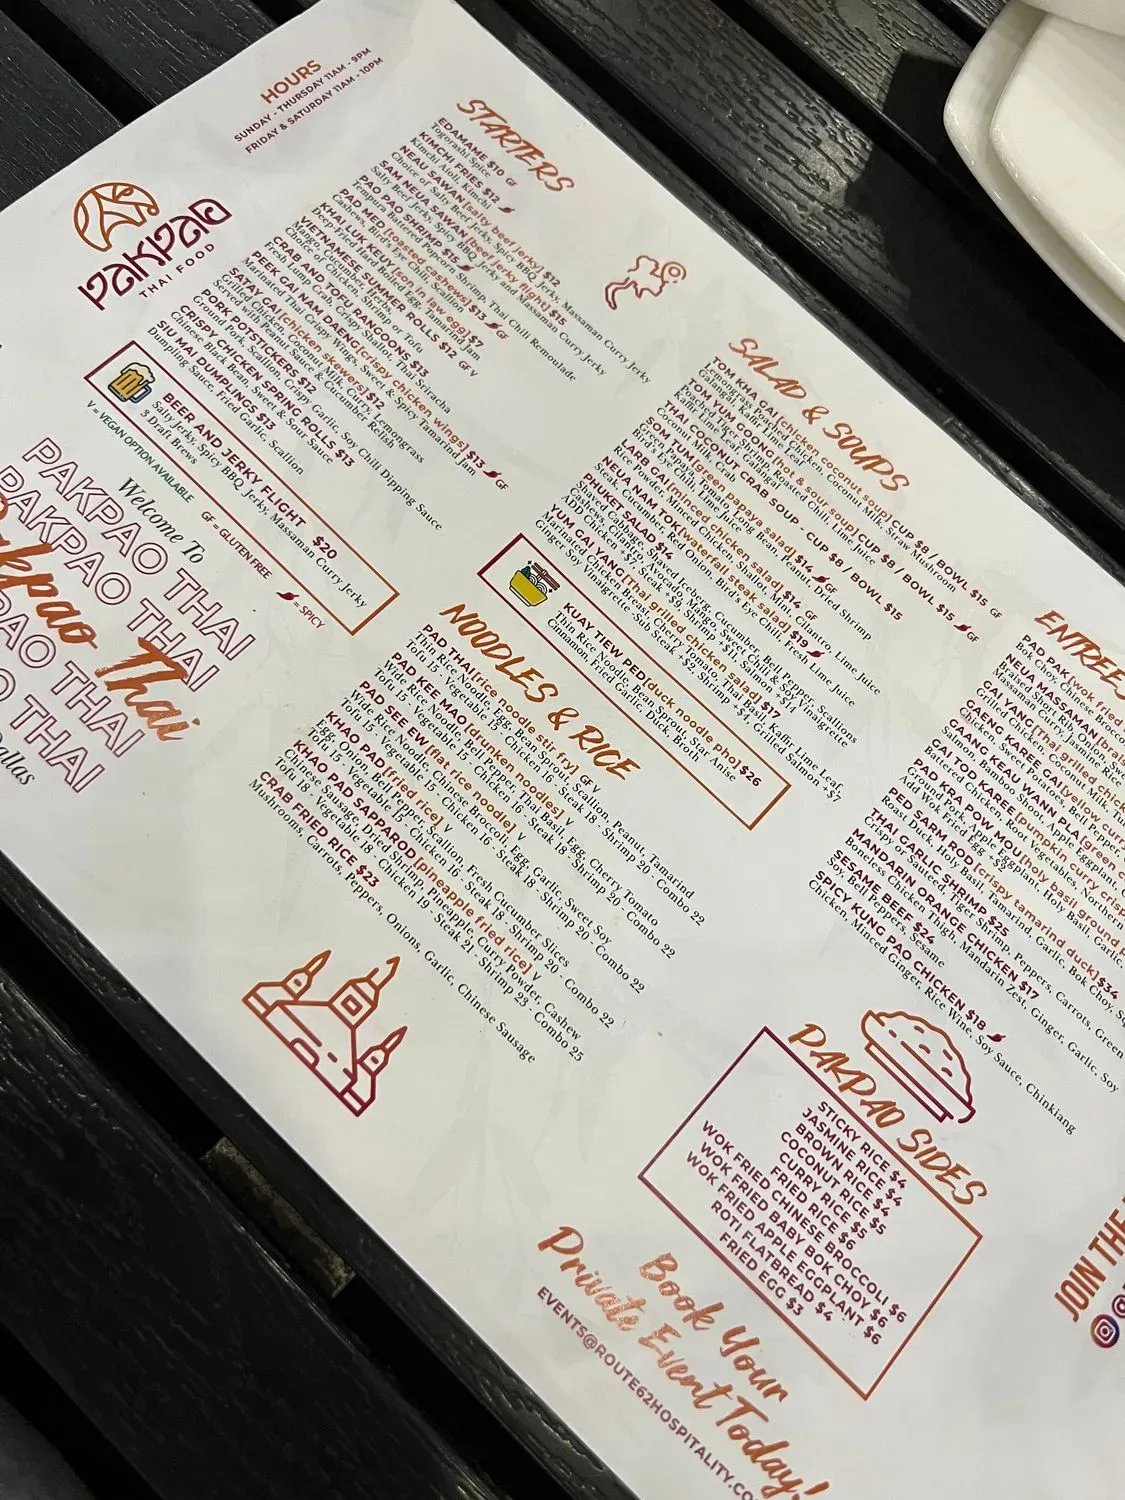 HOURS
SUNDAY - THURSDAY 11AM - 9PM
FRIDAY & SATURDAY 11AM - 10PM
PAKPAO
THAI FOOD
STARTERS
EDAMAME $10 GF
Togorashi Spice
KIMCHI FRIES $12
Kimchi Aioli, Kimchi
NEAU SAWAN [salty beef jerky] $12
Choice of Salty Beef Jerky, Spicy BBQ Jerky, Massaman Curry Jerky
SAM NEUA SAWAN [beef jerky flight] $15
Salty Beef Jerky, Spicy BBQ Jerky and Massaman Curry Jerky
PAO PAO SHRIMP $15
Tempura Battered Popcorn Shrimp, Thai Chili Remoulade
PAD MED [toasted cashews] $13 GF
Cashews, Bird's Eye Chili, Scallion
KHAI LUK KEUY [son in law egg] $7
Deep Fried Soft Boiled Egg, Tamarind Jam
VIETNAMESE SUMMER ROLLS $12 GF V
Mango, Cucumber, Herbs,
Choice of Chicken, Shrimp, or Tofu
CRAB AND TOFU RANGOONS $13
Fresh Lump Crab, Crispy Shallot, Thai Sriracha
PEEK GAI NAM DAENG [crispy chicken wings] $13 GF
Marinated Thai Crispy Wings, Sweet & Spicy Tamarind Jam
SATAY GAI [chicken skewers] $12
Grilled Chicken, Coconut Milk, Curry, Lemongrass
Served with Peanut Sauce & Cucumber Relish
PORK POTSTICKERS $12
Ground Pork, Scallion, Crispy Garlic, Soy Chili Dipping Sauce
CRISPY CHICKEN SPRING ROLLS $13
Chinese Black Bean, Sweet & Sour Sauce
SIU MAI DUMPLINGS $13
Dumpling Sauce, Fried Garlic, Scallion
BEER AND JERKY FLIGHT $20
Salty Jerky, Spicy BBQ Jerky, Massaman Curry Jerky
3 Draft Brews
V = VEGAN OPTION AVAILABLE GF = GLUTEN FREE = SPICY
Welcome To
PAKPAO THAI
PAKPAO THAI
Pakpao Thai
PAO THAI
O THAI
THAI
Dallas
SALAD & SOUPS
TOM KHA GAI [chicken coconut soup] CUP $9 / BOWL $15 GF
Lemongrass Poached Chicken, Coconut Milk, Straw Mushroom
Galangal, Kaffir Lime Leaf
TOM YUM GGONG [hot & sour soup] CUP $8 / BOWL $15 GF
Roasted Tiger Shrimp, Roasted Chili, Lime Juice
Kaffir Lime Leaf, Galangal
THAI COCONUT CRAB SOUP - CUP $8 / BOWL $15
Coconut Milk, Crab
SOM TUM [green papaya salad] $14 GF
Green Papaya, Tomato, Long Bean, Peanut, Dried Shrimp
Bird's Eye Chili, Lime
LARB GAI [minced chicken salad] $14 GF
Rice Powder, Minced Chicken, Shallot, Mint, Cilantro, Lime Juice
NEUA NAM TOK [waterfall steak salad] $19
Steak, Cucumber, Red Onion, Bird's Eye Chili, Fresh Lime Juice
PHUKET SALAD $14
Shaved Cabbage, Shaved Iceberg, Cucumber, Bell Pepper, Scallions
Cashews, Cilantro, Avocado Mango, Sweet Chili & Soy Vinaigrette
ADD Chicken +$7, Steak +$9, Shrimp +$11, Salmon +$14
YUM GAI YANG [Thai grilled chicken salad] $17
Marinated Chicken Breast, Cherry Tomato, Thai Basil, Kaffir Lime Leaf,
Ginger Soy Vinaigrette -Sub Steak +$2, Shrimp +$4, Grilled Salmon +$7
KUAY TIEW PED [duck noodle pho] $26
Thin Rice Noodle, Bean Sprout, Star Anise
Cinnamon, Fried Garlic, Duck, Broth
NOODLES & RICE
PAD THAI [rice noodle stir fry] GF V
Thin Rice Noodle, Egg, Bean Sprout, Scallion, Peanut, Tamarind
Tofu 15 - Vegetable 15 - Chicken 16 - Steak 18 - Shrimp 20 - Combo 22
PAD KEE MAO [drunken noodles] V
Wide Rice Noodle, Bell Pepper, Thai Basil, Egg, Cherry Tomato
Tofu 15 - Vegetable 15 - Chicken 16 - Steak 18 - Shrimp 20 - Combo 22
PAD SEE EW [flat rice noodle] V
Wide Rice Noodle, Chinese Broccoli, Egg, Garlic, Sweet Soy
Tofu 15 - Vegetable 15 - Chicken 16 - Steak 18 - Shrimp 20 - Combo 22
KHAO PAD [fried rice] V
Egg, Onion, Bell Pepper, Scallion, Fresh Cucumber Slices
Tofu 15 - Vegetable 15 - Chicken 16 - Steak 18 - Shrimp 20 - Combo 22
KHAO PAD SAPPAROD [pineapple fried rice] V
Chinese Sausage, Dried Shrimp, Pineapple, Curry Powder, Cashew
Tofu 18 - Vegetable 18 - Chicken 19 - Steak 21 - Shrimp 23 - Combo 25
CRAB FRIED RICE $23
Mushrooms, Carrots, Peppers, Onions, Garlic, Chinese Sausage
ENTREES
PAD PAK [wok fried
Bok Choy, Chinese Broccoli
NEUA MASSAMAN [brais
Braised Short Rib, Onion, Swe
Massaman Curry, Jasmine Rice
GAI YANG [Thai grilled chick
Grilled Chicken, Coconut Milk, Tu
GAENG KAREE GAI [yellow curr
Chicken, Sweet Potatoes, Bell Peper,
GAANG KEAU WANN PLA [green c
Salmon, Bamboo Shoot, Apple Eggplant, G
GAI TOD KAREE [pumpkin curry crisp
Battered Chicken, Root Vegetables, Northern
PAD KRA POW MOU [holy basil ground p
Ground Pork, Apple Eggplant, Holy Basil, Garlic,
Add Wok Fried Egg +$2
PED SARM ROD [crispy tamarind duck] $34
Roast Duck, Holy Basil, Tamarind, Garlic, Bok Choy, Sq
THAI GARLIC SHRIMP $25
Crispy or Sauteed, Tiger Shrimp, Peppers, Carrots, Green
MANDARIN ORANGE CHICKEN $17
Boneless Chicken Thigh, Mandarin Zest, Ginger, Garlic, Soy
SESAME BEEF $24
Soy, Bell Peppers, Sesame
SPICY KUNG PAO CHICKEN $18
Chicken, Minced Ginger, Rice Wine, Soy Sauce, Chinkiang
PAKPAO SIDES
STICKY RICE $4
JASMINE RICE $4
BROWN RICE $4
COCONUT RICE $5
CURRY RICE $5
FRIED RICE $6
WOK FRIED CHINESE BROCCOLI $6
WOK FRIED BABY BOK CHOY $6
WOK FRIED APPLE EGGPLANT $6
ROTI FLATBREAD $4
FRIED EGG $3
Book Your
Private Event Today!
EVENTS@ROUTE62HOSPITALITY.CO
JOIN THE